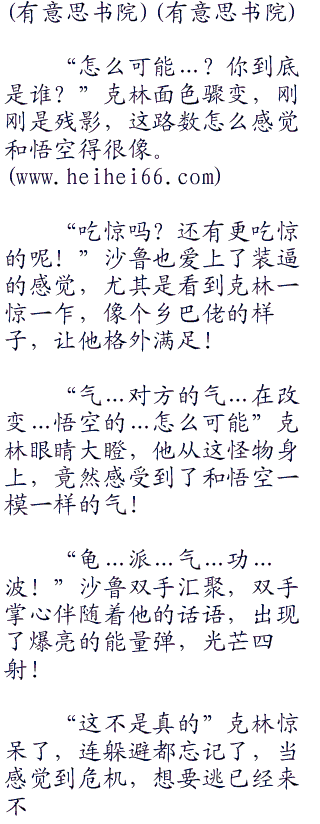 (有意思书院)(有意思书院)
“怎么可能…？你到底
是谁？”克林面色骤变，刚
刚是残影，这路数怎么感觉
和悟空得很像。
(www.heihei66.com)
“吃惊吗？还有更吃惊
的呢！”沙鲁也爱上了装逼
的感觉，尤其是看到克林一
惊一乍，像个乡巴佬的样
子，让他格外满足！
“气…对方的气…在改
变…悟空的…怎么可能”克
林眼睛大瞪，他从这怪物身
上，竟然感受到了和悟空一
模一样的气！
“龟…派…气…功…
波！”沙鲁双手汇聚，双手
掌心伴随着他的话语，出现
了爆亮的能量弹，光芒四
射！
“这不是真的”克林惊
呆了，连躲避都忘记了，当
感觉到危机，想要逃已经来
不